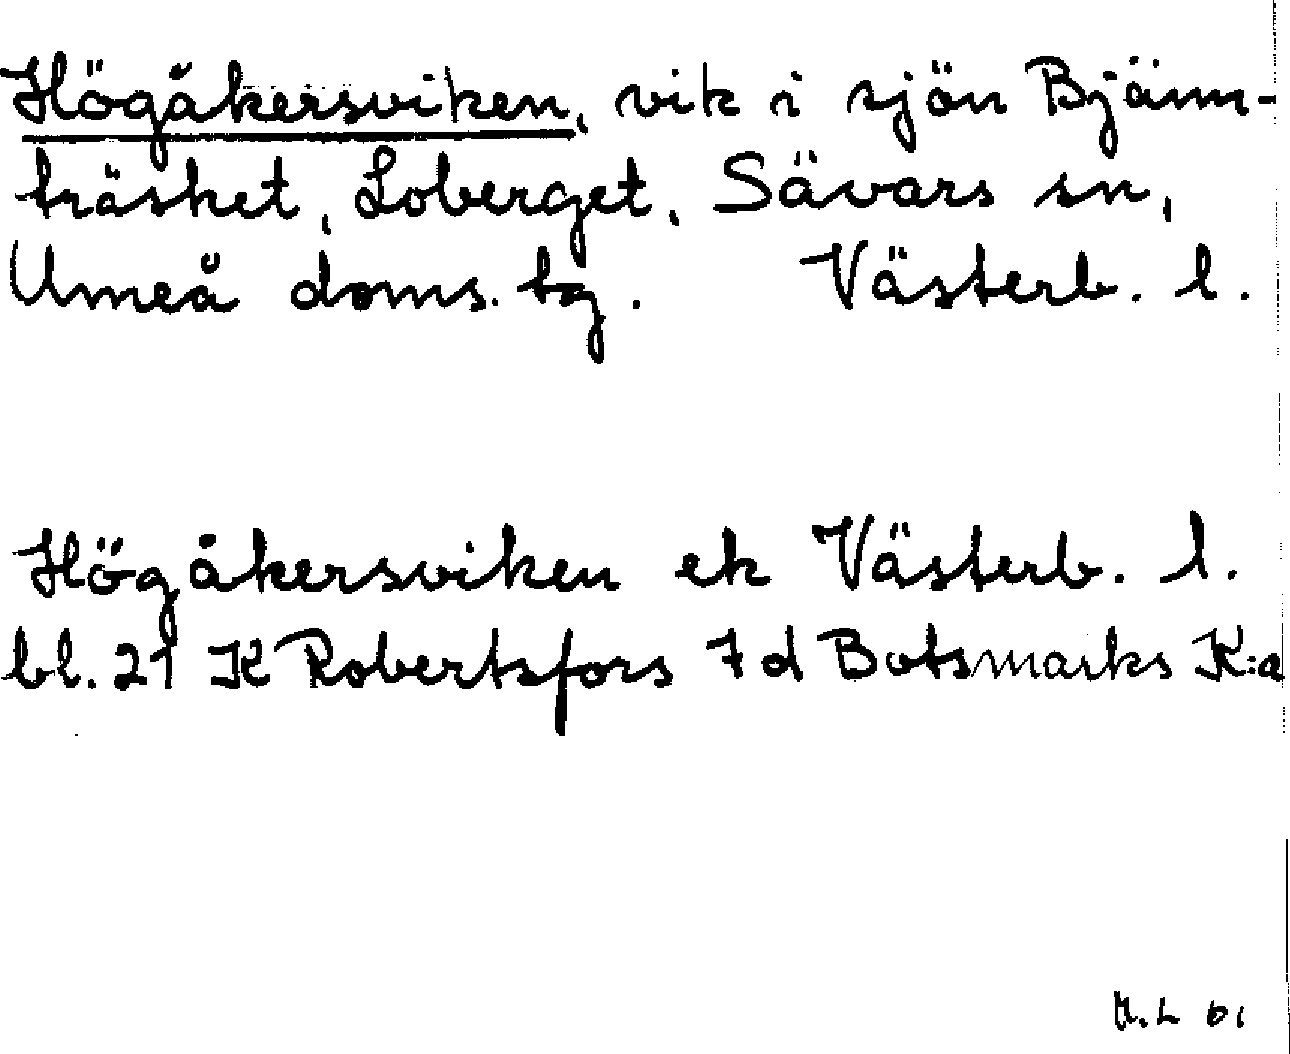 Högåkersviken, vik i sjön Bjänn-
träsket, Loberget, Sävars sn,
Umeå doms. tg. Västerb. l.
Högåkersviken ek Västerb. l.
bl. 21 K Robertsfors 7d Botsmarks K:a
H.L 61